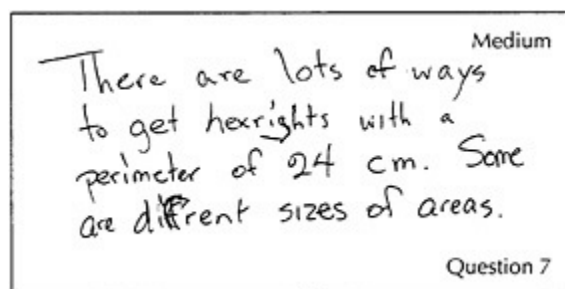 Medium
There are lots of ways
to get hexrights with a
perimeter of 24 cm. Some
are diffrent sizes of areas.
Question 7